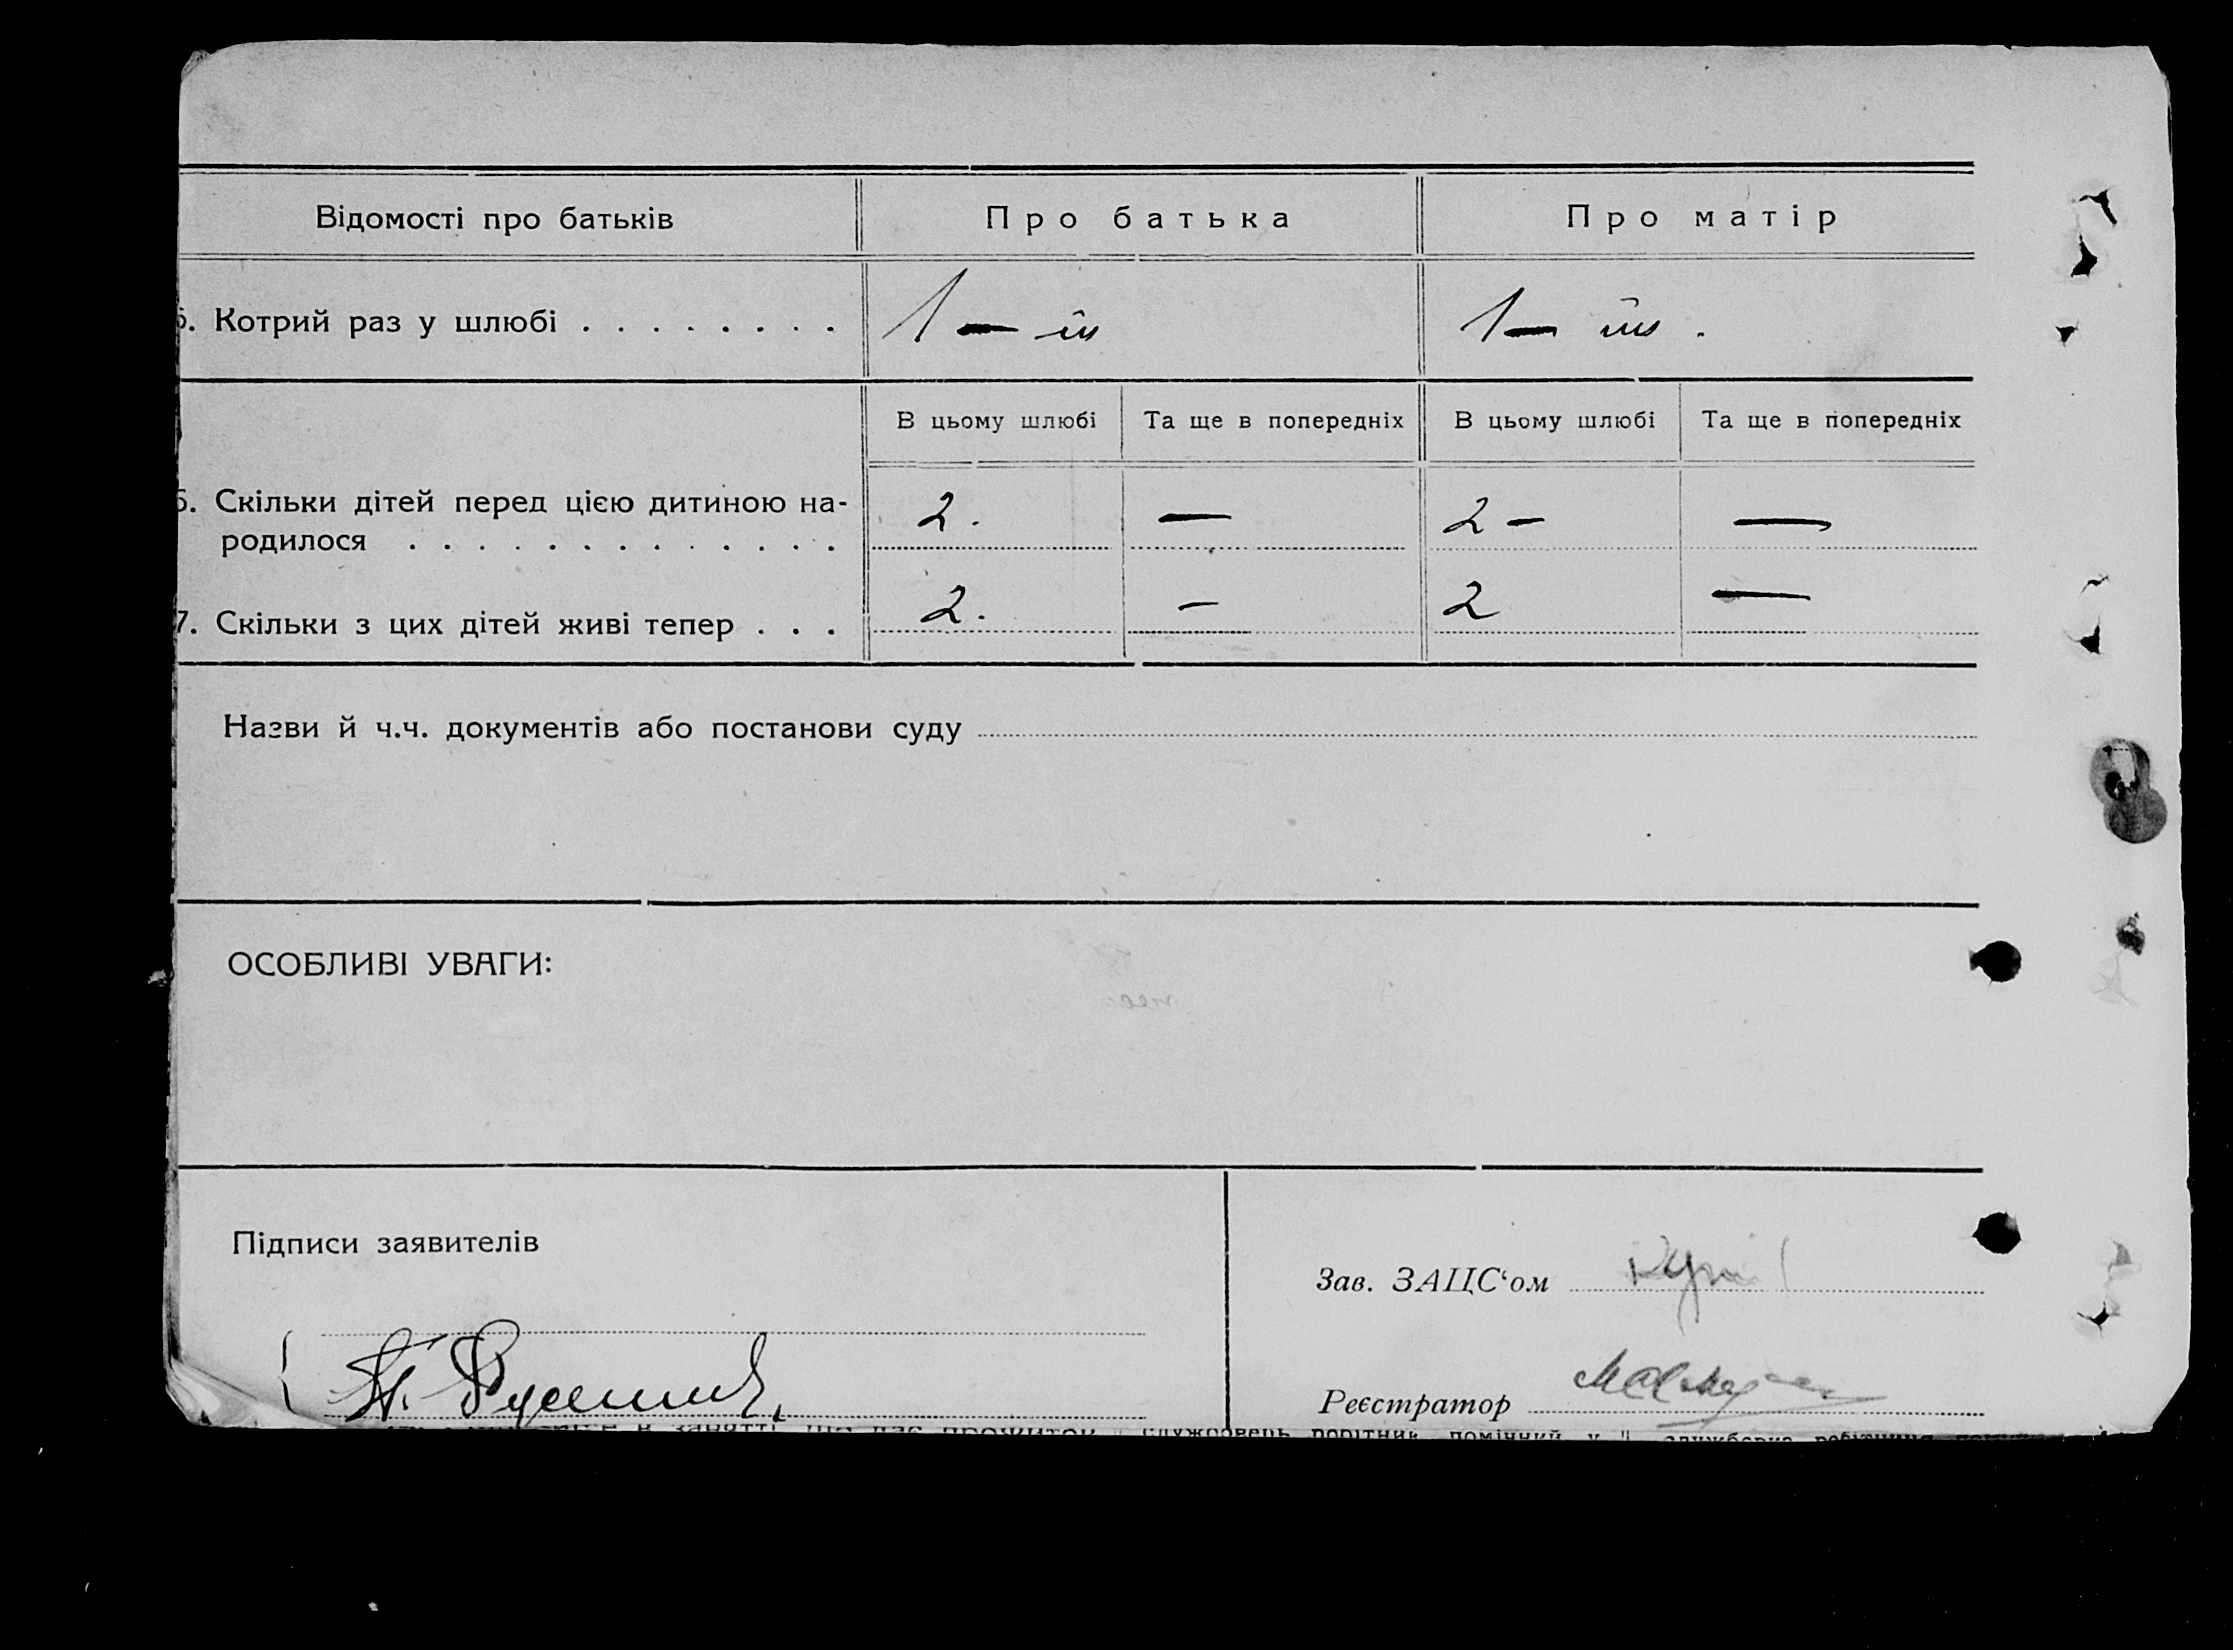 Відомості про батьків Про батька Про матір
Котрий раз у шлюбі . . . . . . . . 1 — й 1 — й .
В цьому шлюбі Та ще в попередніх В цьому шлюбі Та ще в попередніх
6. Скільки дітей перед цією дитиною на-
родилося . . . . . . . . . . . . . 2. — 2 — —
7. Скільки з цих дітей живі тепер . . . 2. — 2 —
Назви й ч.ч. документів або постанови суду
ОСОБЛИВІ УВАГИ:
Підписи заявителів
Зав. ЗАЦС‘ом
Реєстратор